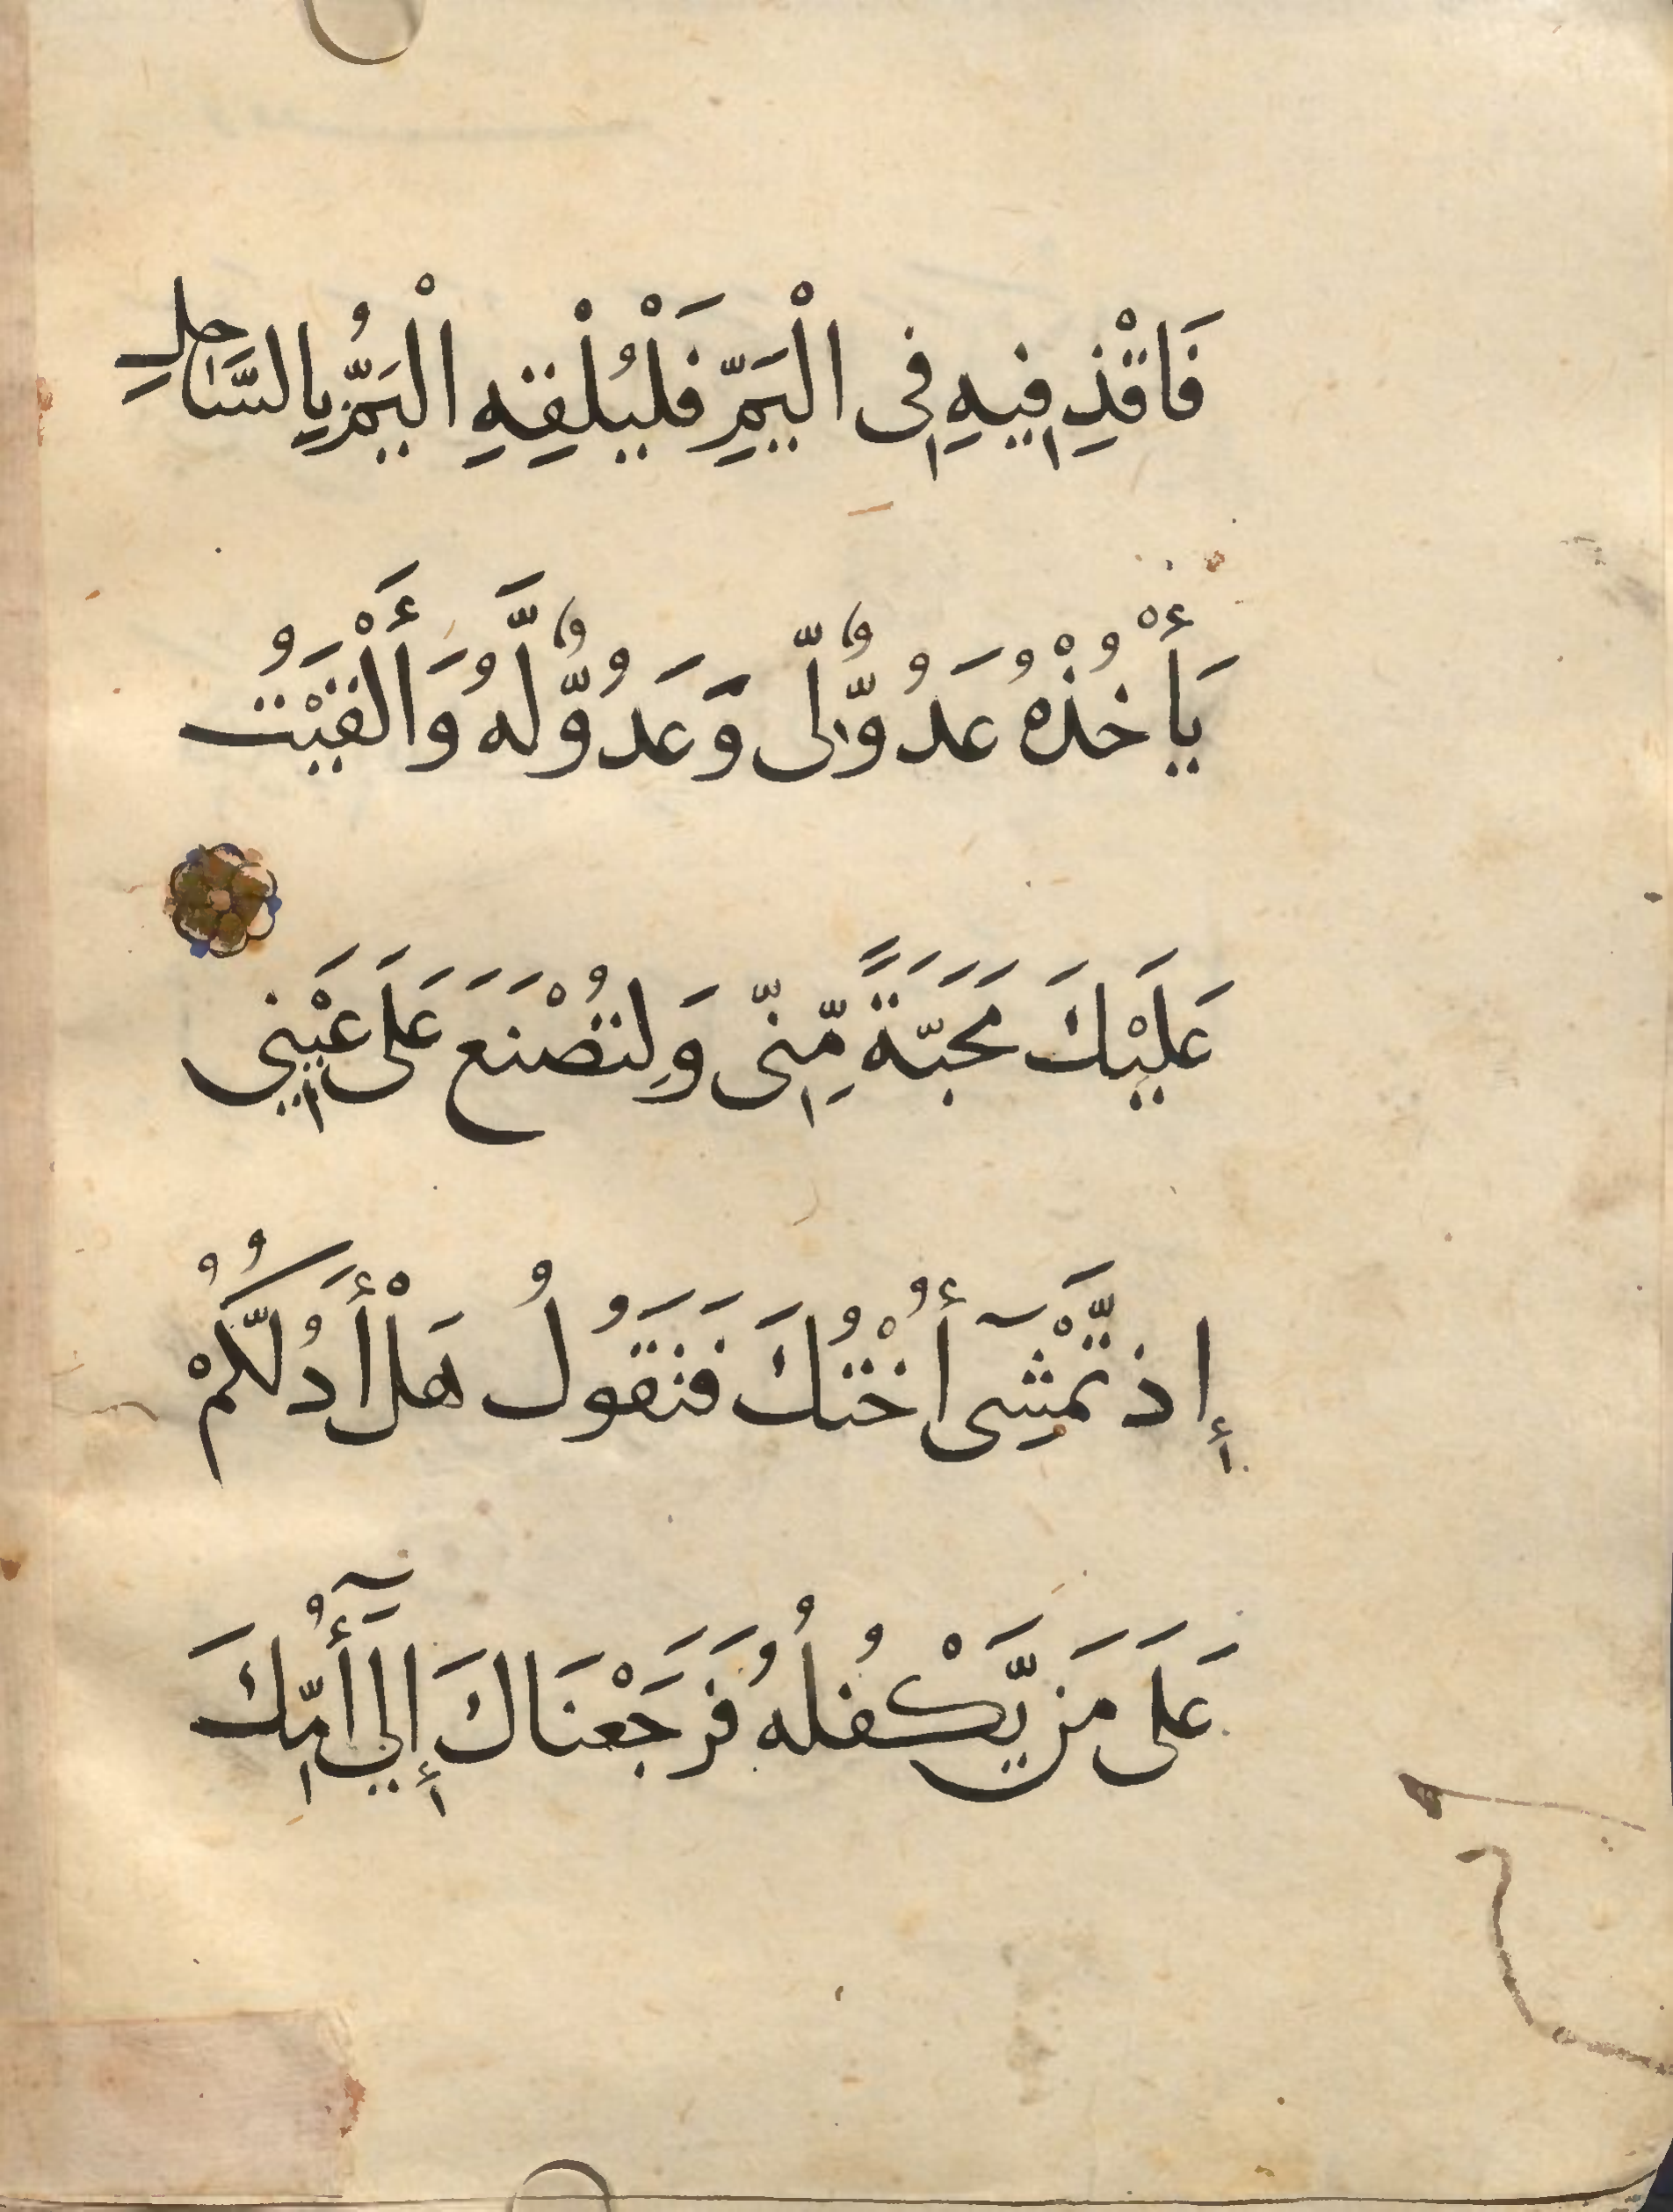 فَاقْذِفِيهِ فِى الْيَمِّ فَلْيُلْقِهِ الْيَمُّ بِالسَّاحِلِ
يَأْخُذْهُ عَدُوٌّ لِّى وَعَدُوٌّ لَّهُ وَأَلْقَيْتُ
عَلَيْكَ مَحَبَّةً مِّنِّى وَلِتُصْنَعَ عَلَى عَيْنِى
إِذ تَّمْشِىٓ أُخْتُكَ فَتَقُولُ هَلْ أَدُلُّكُمْ
عَلَى مَن يَّكْفُلُهُ فَرَجَعْنَاكَ إِلَىٓ أُمِّكَ